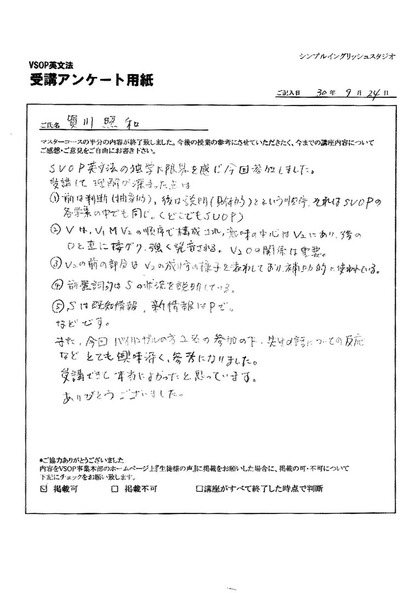 シンプルイングリッシュスタジオ
VSOP英文法
受講アンケート用紙
ご記入日 30年 9月 24日
ご氏名 賀川 照和
マスターコースの半分の内容が終了致しました。今後の授業の参考にさせていただきたく、今までの講座内容について
ご感想・ご意見をご自由にお書き下さい。
SVOP英文法の独学に限界を感じ今回参加しました。
受講して理解が深まった点は
①前は判断(抽象的)、後は説明(具体的)とという順序、それはSVOPの
各要素の中でも同じ。(どこでもSVOP)
②Vは、V₁MV₂の順序で構成され、意味の中心はV₂にあり、後の
Oと直に接がり、強く発音される。V₂Oの関係は重要。
③V₂の前の部分はV₂の様子を表わしており、補助的に使われている。
④前置詞句はSの状況を説明している。
⑤Sは既知情報、新情報はPで。
などです。
また、今回バイリンガルの方の参加の下、
など とても興味深く、参考になりました。
受講できて本当によかったと思っています。
ありがとうございました。
*ご協力ありがとうございました
内容をVSOP事業本部のホームページ上『生徒様の声』に掲載をお願いした場合に、掲載の可・不可について
下記にチェックをお願い致します。
☑ 掲載可 □ 掲載不可 □講座がすべて終了した時点で判断